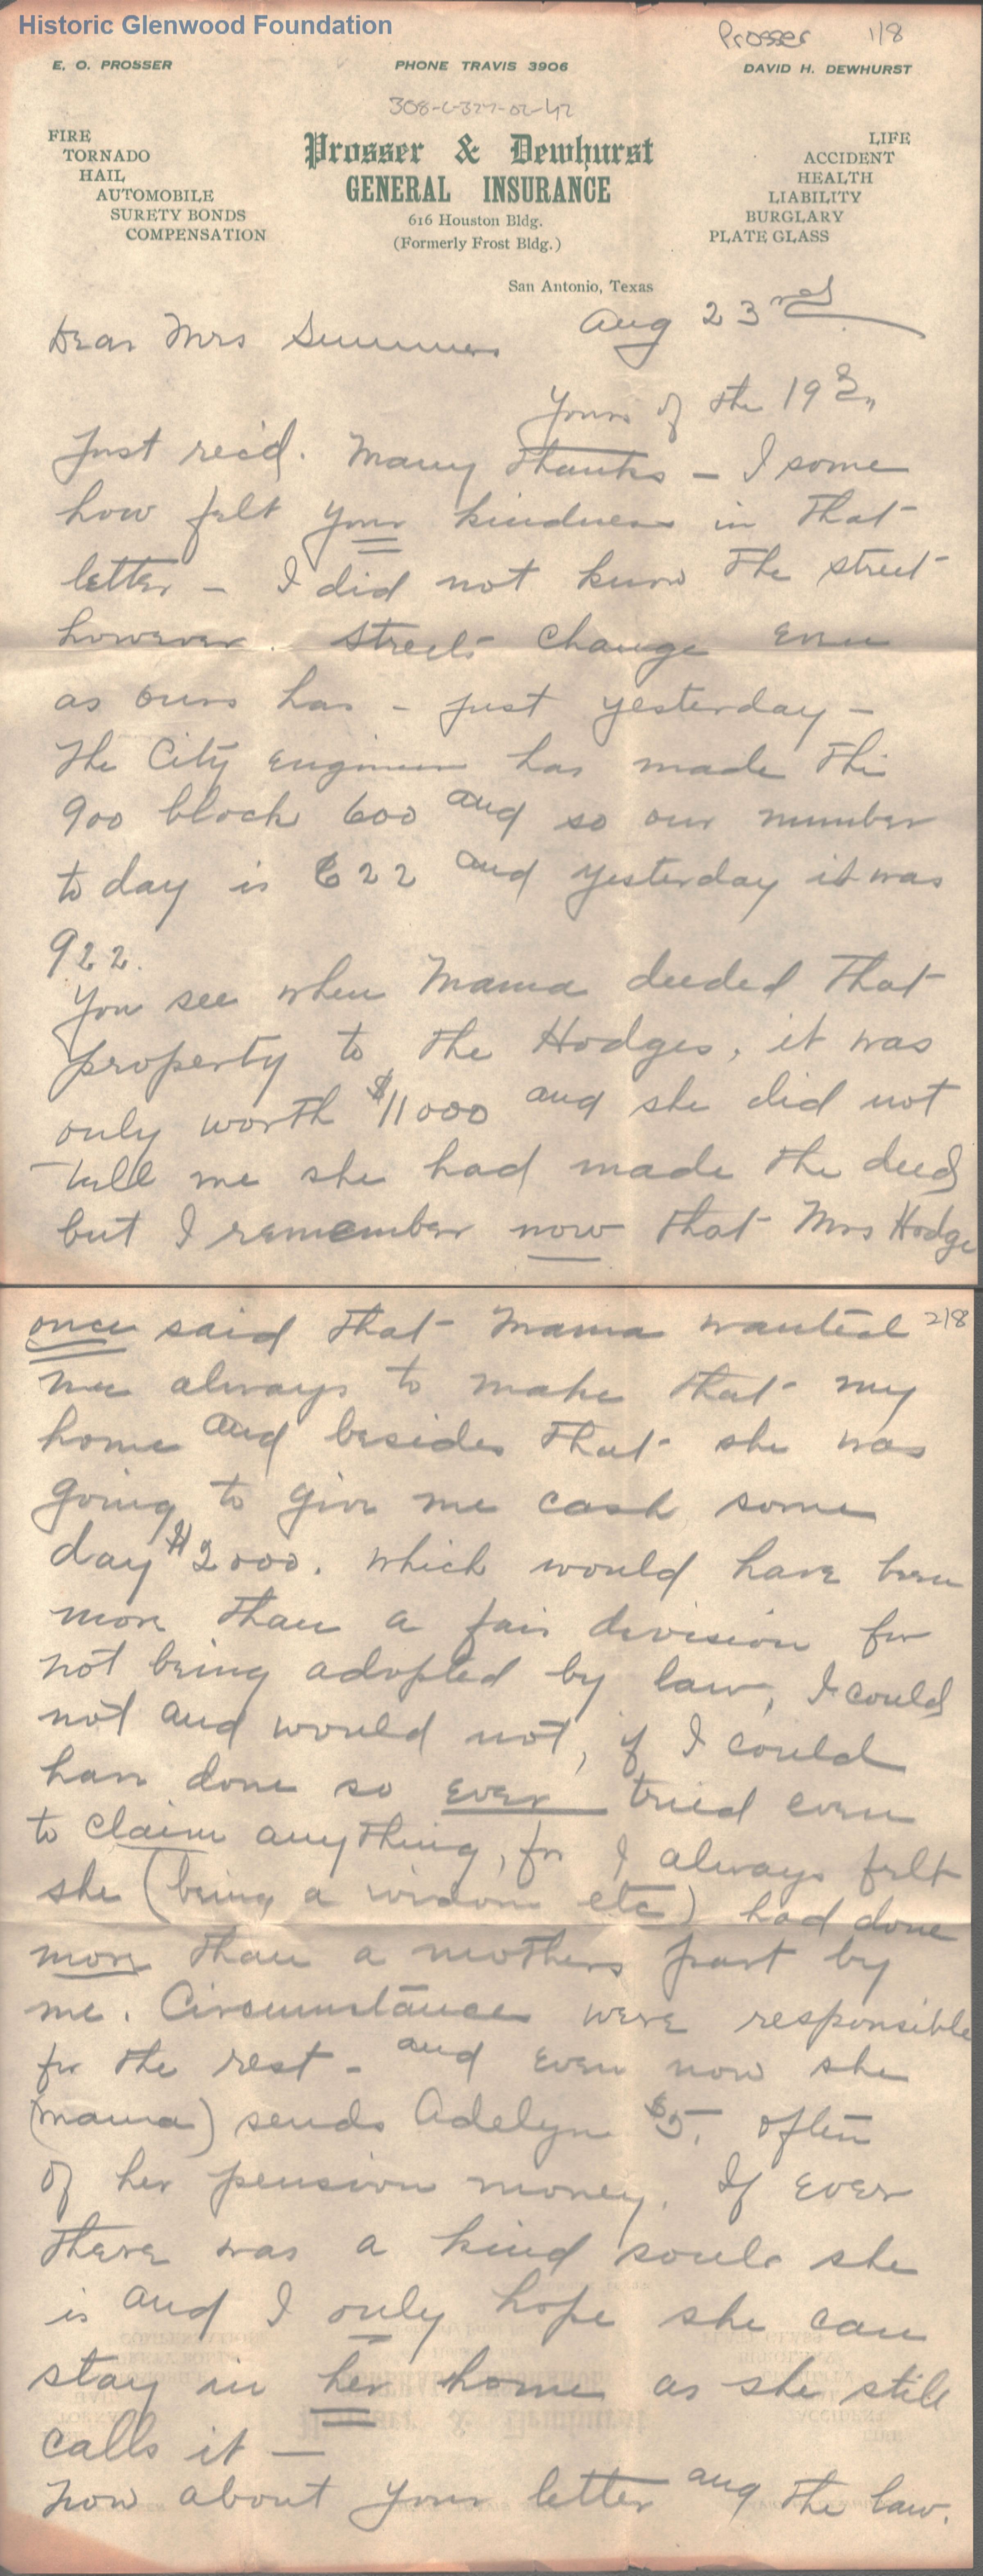 Historic Glenwood Foundation
Prosser 1/8
E. O. PROSSER PHONE TRAVIS 3906 DAVID H. DEWHURST
308-C-327-02-42
FIRE
TORNADO
HAIL
AUTOMOBILE
SURETY BONDS
COMPENSATION
Prosser & Dewhurst
GENERAL INSURANCE
616 Houston Bldg.
(Formerly Frost Bldg.)
LIFE
ACCIDENT
HEALTH
LIABILITY
BURGLARY
PLATE GLASS
San Antonio, Texas
Aug 23rd
Dear Mrs Summers
Yours of the 19th
Just rec'd. Many Thanks – I some
how felt your kindness in that
letter – I did not know the street
however. Streets change even
as ours has – just yesterday –
The City engineer has made this
900 block 600 and so our number
to day is 622 and yesterday it was
922.
You see when Mama deeded that
property to the Hodges, it was
only worth $11000 and she did not
tell me she had made the deed
but I remember now that Mrs Hodge
once said that Mama wanted 2/8
me always to make that my
home and besides that she was
going to give me cash some
day $2000. which would have been
more than a fair division for
not being adopted by law, I could
not and would not, if I could
have done so ever tried even
to claim anything, for I always felt
she (being a widow etc) had done
more than a mothers part by
me. Circumstances were responsible
for the rest – and even now she
(Mama) sends Adelyn $5. often
of her pension money. If ever
there was a kind soul she
is and I only hope she can
stay in her home as she still
calls it –
Now about your letter and the law.